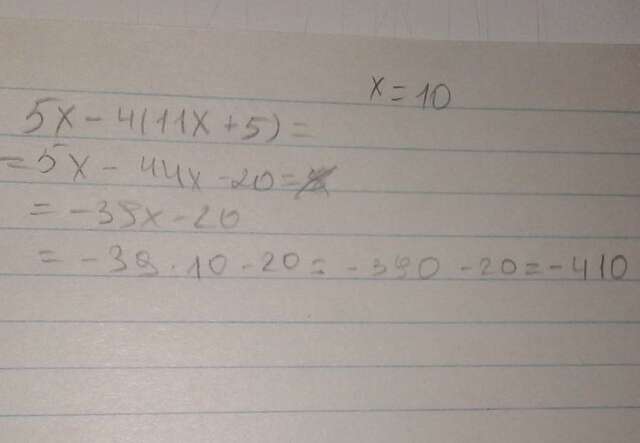 x = 10
5x - 4(11x + 5) =
= 5x - 44x - 20 =
= -39x - 20
= -39 · 10 - 20 = -390 - 20 = -410